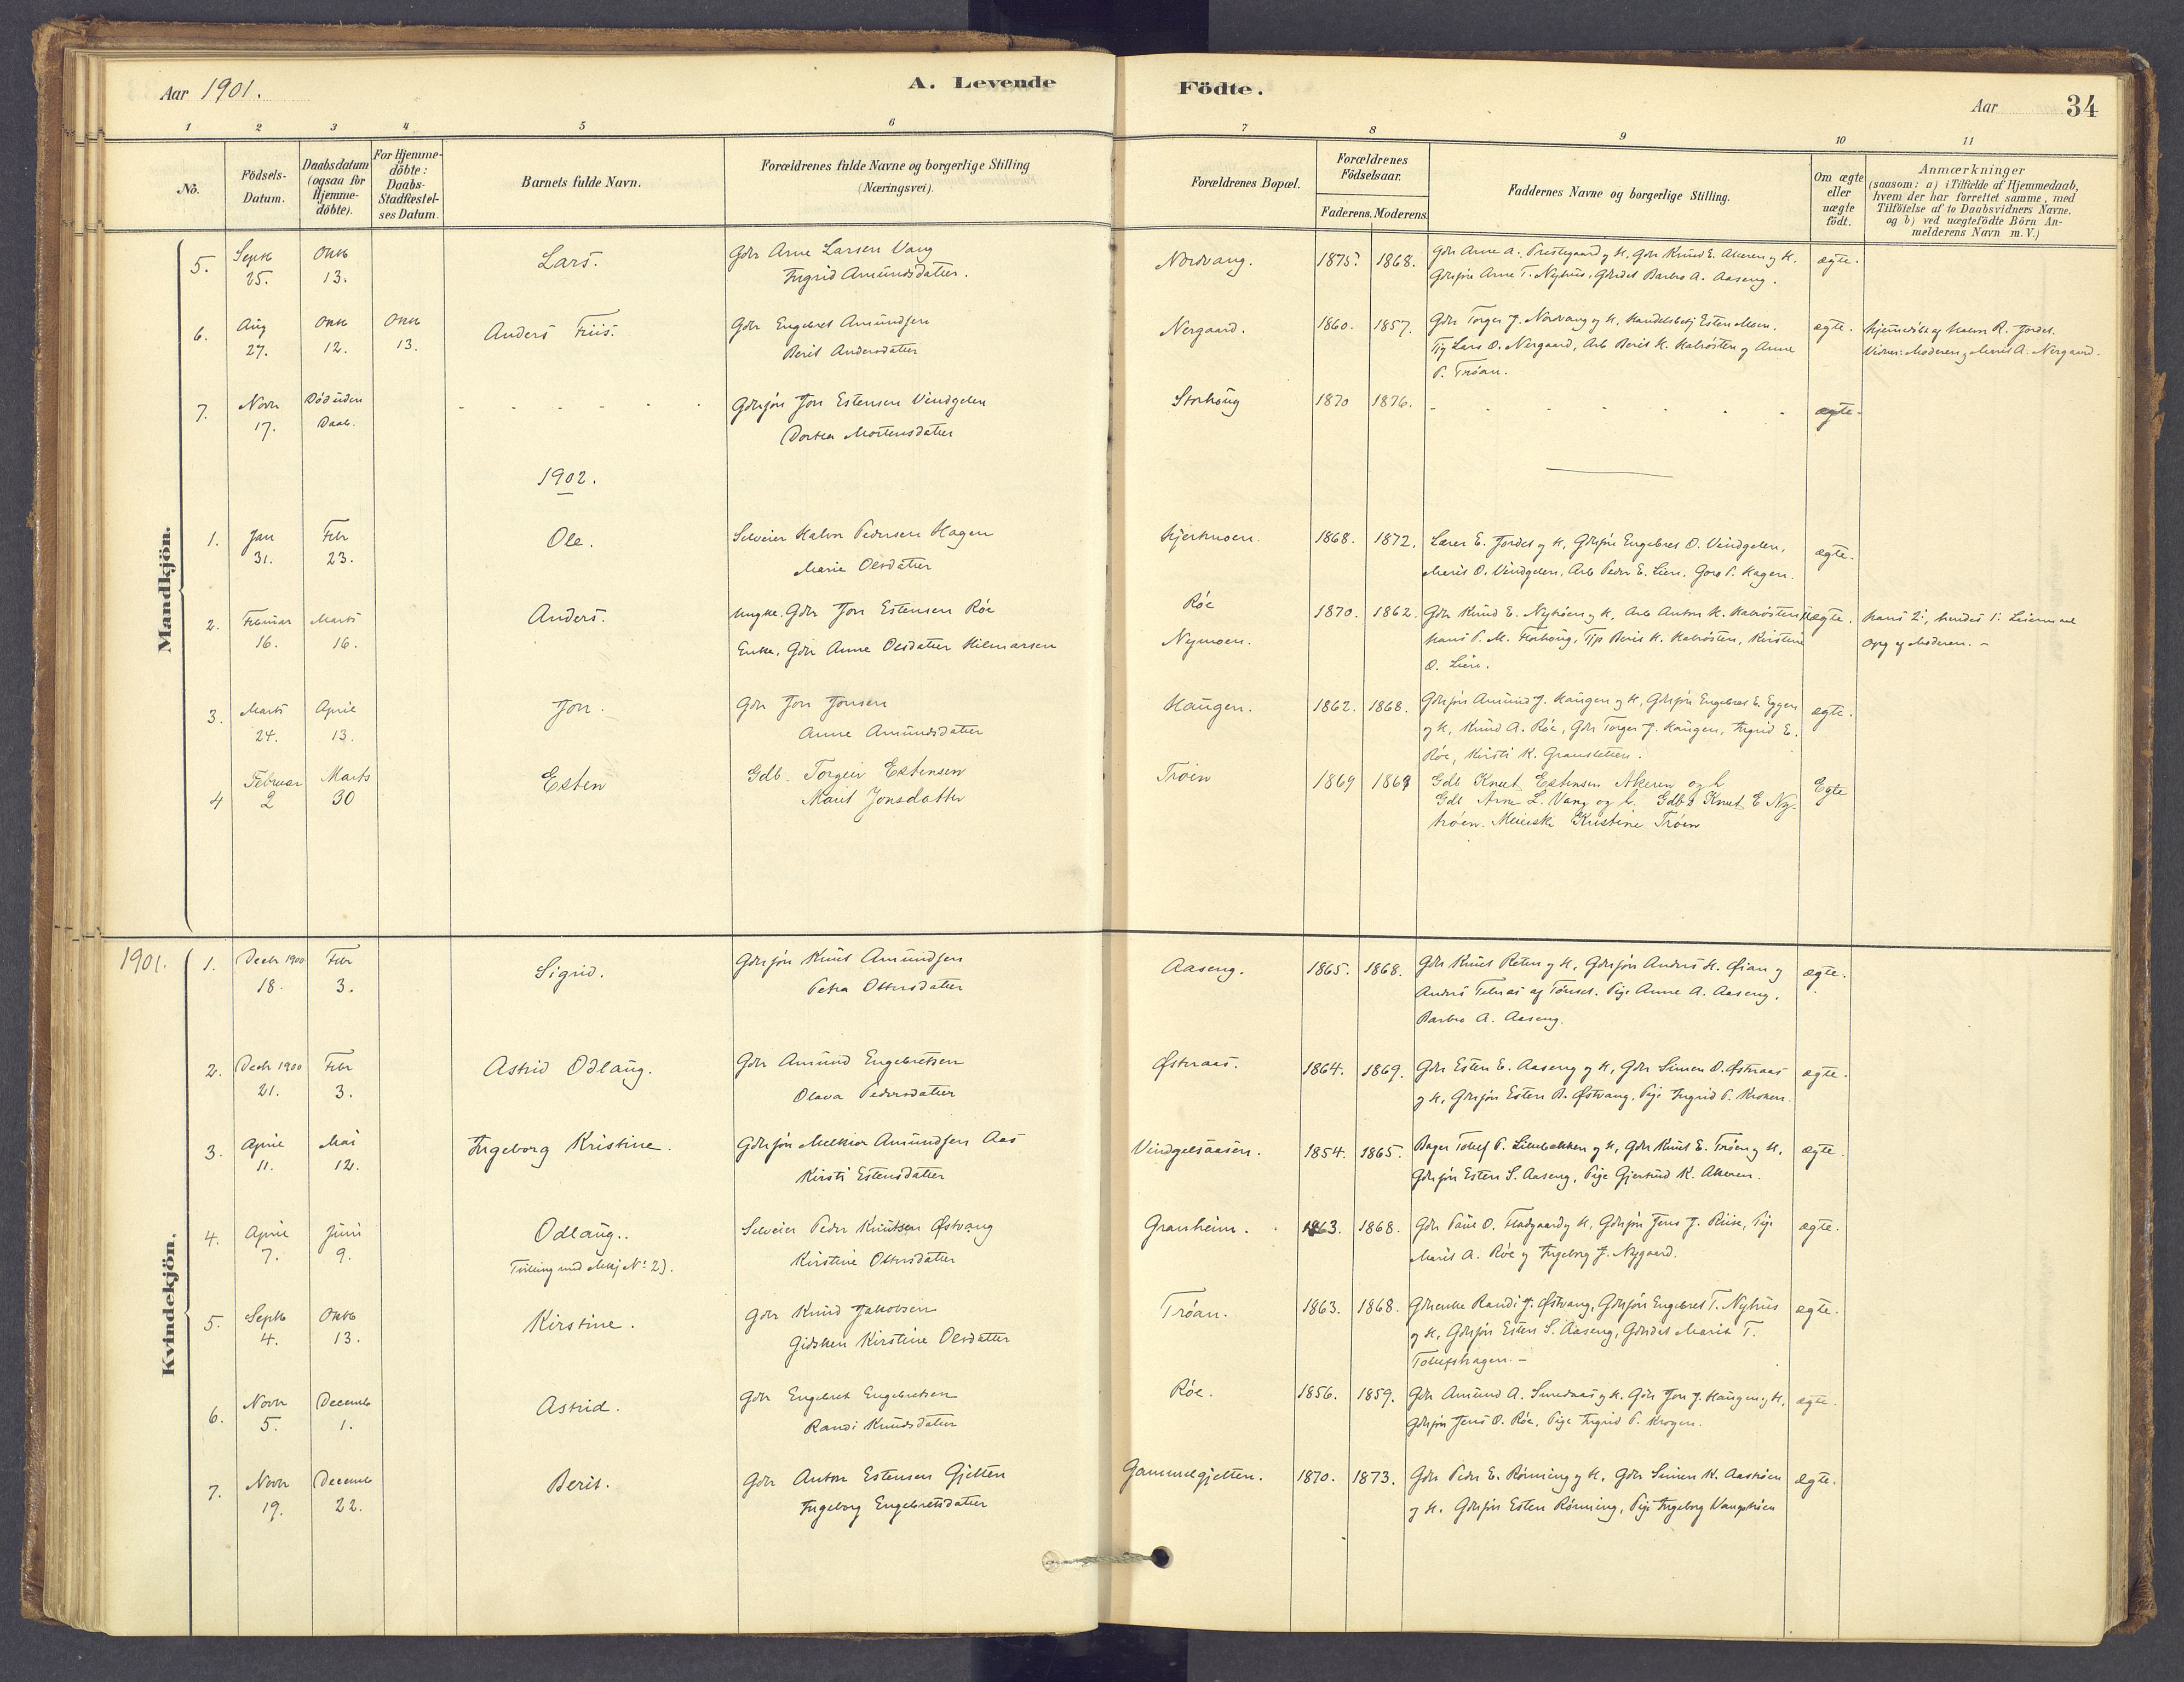 Aar 1901.
A. Levende Födte.
Aar 34
1 2 3 4 5 6 7 8 9 10 11
No.
Födsels-Datum.
Daabsdatum (ogsaa for Hjemme-döbte).
For Hjemme-döbte: Daabs-Stadfæstel-ses Datum.
Barnets fulde Navn.
Forældrenes fulde Navne og borgerlige Stilling (Næringsvei).
Forældrenes Bopæl.
Forældrenes Födselsaar.
Faderens. Moderens.
Faddernes Navne og borgerlige Stilling.
Om ægte eller uægte födt.
Anmærkninger
(saasom: a) i Tilfælde af Hjemmedaab,
hvem der har forrettet samme, med
Tilföielse af to Daabsvidners Navne.
og b) ved uægtefödte Börn An-
melderens Navn m. V.)
Mandkjön.
5. Septb 25. Oktb 13. Lars. Gbr Arne Larsen Vang
Ingrid Amundsdatter.
Nordvang. 1875. 1868. Gbr Arne A. Prestegaard og H, Gbr Knud E. Akeren og H.
Gbrsön Arne T. Nyhus, Gbrdat Barbro A. Aaseng.
ægte.
6. Aug 27. Oktb 12. Oktb 13. Anders Friis. Gbr Engebret Amundsen
Berit Andersdatter
Nergaard. 1860. 1857. Gbr Torger J. Nordvang og H, Handelsbetj Esten Moen.
Tjg Lars O. Nergaard, Arb Berit H. Kalrösten og Anne
P. Tröan.
ægte. Hjemmedöbt af Halvor R. Jordet.
Vidner: Moderen og Marit A. Nergaard.
7. Novr 17. Död uden Daab. - - - - - - Gbrsön Jon Estensen Vindgelen
Dortea Mortensdatter
Storhoug 1870 1876. - - - - - - ægte.
1902.
1. Jan 31. Febr 23. Ole. Selveier Halvor Pedersen Hagen
Marie Olsdatter
Kjernmoen. 1868. 1872. Lærer E. Jordet og H, Gbrsön Engebret O. Vindgelen,
Marit O. Vindgelen, Arb Peder E. Lien, Goro P. Hagen.
ægte.
2. Februar 16. Marts 16. Anders. Ungka. Gbr Jon Estensen Röe
Enke, Gbr Anne Olsdatter Hilmarsen
Röe
Nymoen. 1870. 1862. Gbr Knud E. Nytröen og H, Arb Anton H. Kalrösten
Hans P. M. Florhoug, Tjp Berit H. Kalrösten, Kirstine
O. Lien.
uægte. Hans 2:, hendes 1: Leiermaal
Opg af Moderen. -
3. Marts 24. April 13. Jon. Gbr Jon Jonsen
Anne Amundsdatter
Haugen. 1862. 1868. Gbrsön Amund J. Haugen og H, Gbrsön Engebret E. Eggen
og H, Knud A. Röe, Gbr Torger J. Haugen, Ingrid E.
Röe, Kirsti K. Gransletten.
ægte.
4 Februar 2 Marts 30 Esten Gdb. Torgeir Estensen
Marit Jonsdatter
Tröen 1869 1868 Gdb Knut Estensen Akeren og h
Gdb Arne L. Vang og h. Gdb s Knut E Ny-
tröen. Meierske Kristine Tröen
Egte
Kvindekjön.
1901.
1. Decb 1900 18. Febr 3. Sigrid. Gbrsön Knut Amundsen
Petra Ottersdatter
Aaseng. 1865. 1868. Gbr Knut Reten og H, Gbrsön Anders H. Öian og
Anders Telnæs af Tönset. Pige Anne A. Aaseng,
Barbro A. Aaseng.
ægte.
2. Decb 1900 21. Febr 3. Astrid Odlaug. Gbr Amund Engebretsen
Olava Pedersdatter
Østeraas. 1864. 1869. Gbr Esten E. Aaseng og H, Gbr Simen O. Østeraas
og H, Gbrsön Esten B. Østvang, Pige Ingrid P. Kroken.
ægte.
3. April 11. Mai 12. Ingeborg Kristine. Gbrsön Melkior Amundsen Aas
Kirsti Estensdatter
Vindgelsaasen. 1854. 1865. Bager Tollef P. Lillebekken og H, Gbr Knut E. Tröen og H,
Gbrsön Esten S. Aaseng, Pige Gjertrud K. Akeren.
ægte.
4. April 7. Juni 9. Odlaug.
Tvilling med Mkj No 2).
Selveier Peder Knutsen Østvang
Kirstine Ottersdatter
Granheim. 1863. 1868. Gbr Paul O. Fladgaard og H, Gbrsön Jens J. Riise, Pige
Marit A. Röe og Ingeborg J. Nygaard.
ægte.
5. Septb 4. Oktb 13. Kirstine. Gbr Knud Jakobsen
Gidsken Kirstine Olsdatter
Tröan. 1863. 1868. Gbrenke Randi J. Østvang, Gbrsön Engebret T. Nyhus
og H, Gbrsön Esten S. Aaseng, Gbrdat Marit T.
Tollefshagen. -
ægte.
6. Novr 5. Decemb 1. Astrid. Gbr Engebret Engebretsen
Randi Knudsdatter
Röe. 1856. 1859. Gbr Amund A. Smedaas og H. Gbr Jon J. Haugen og H,
Gbrsön Jens O. Röe, Pige Ingrid P. Krogen.
ægte.
7. Novr 19. Decemb 22. Berit. Gbr Anton Estensen Gjelten
Ingeborg Engebretsdatter
Gammelgjelten. 1870. 1873. Gbr Peder E. Rönning og H, Gbr Simen K. Aaströen
og H. Gbrsön Esten Rönning, Pige Ingeborg Vangströen
ægte.